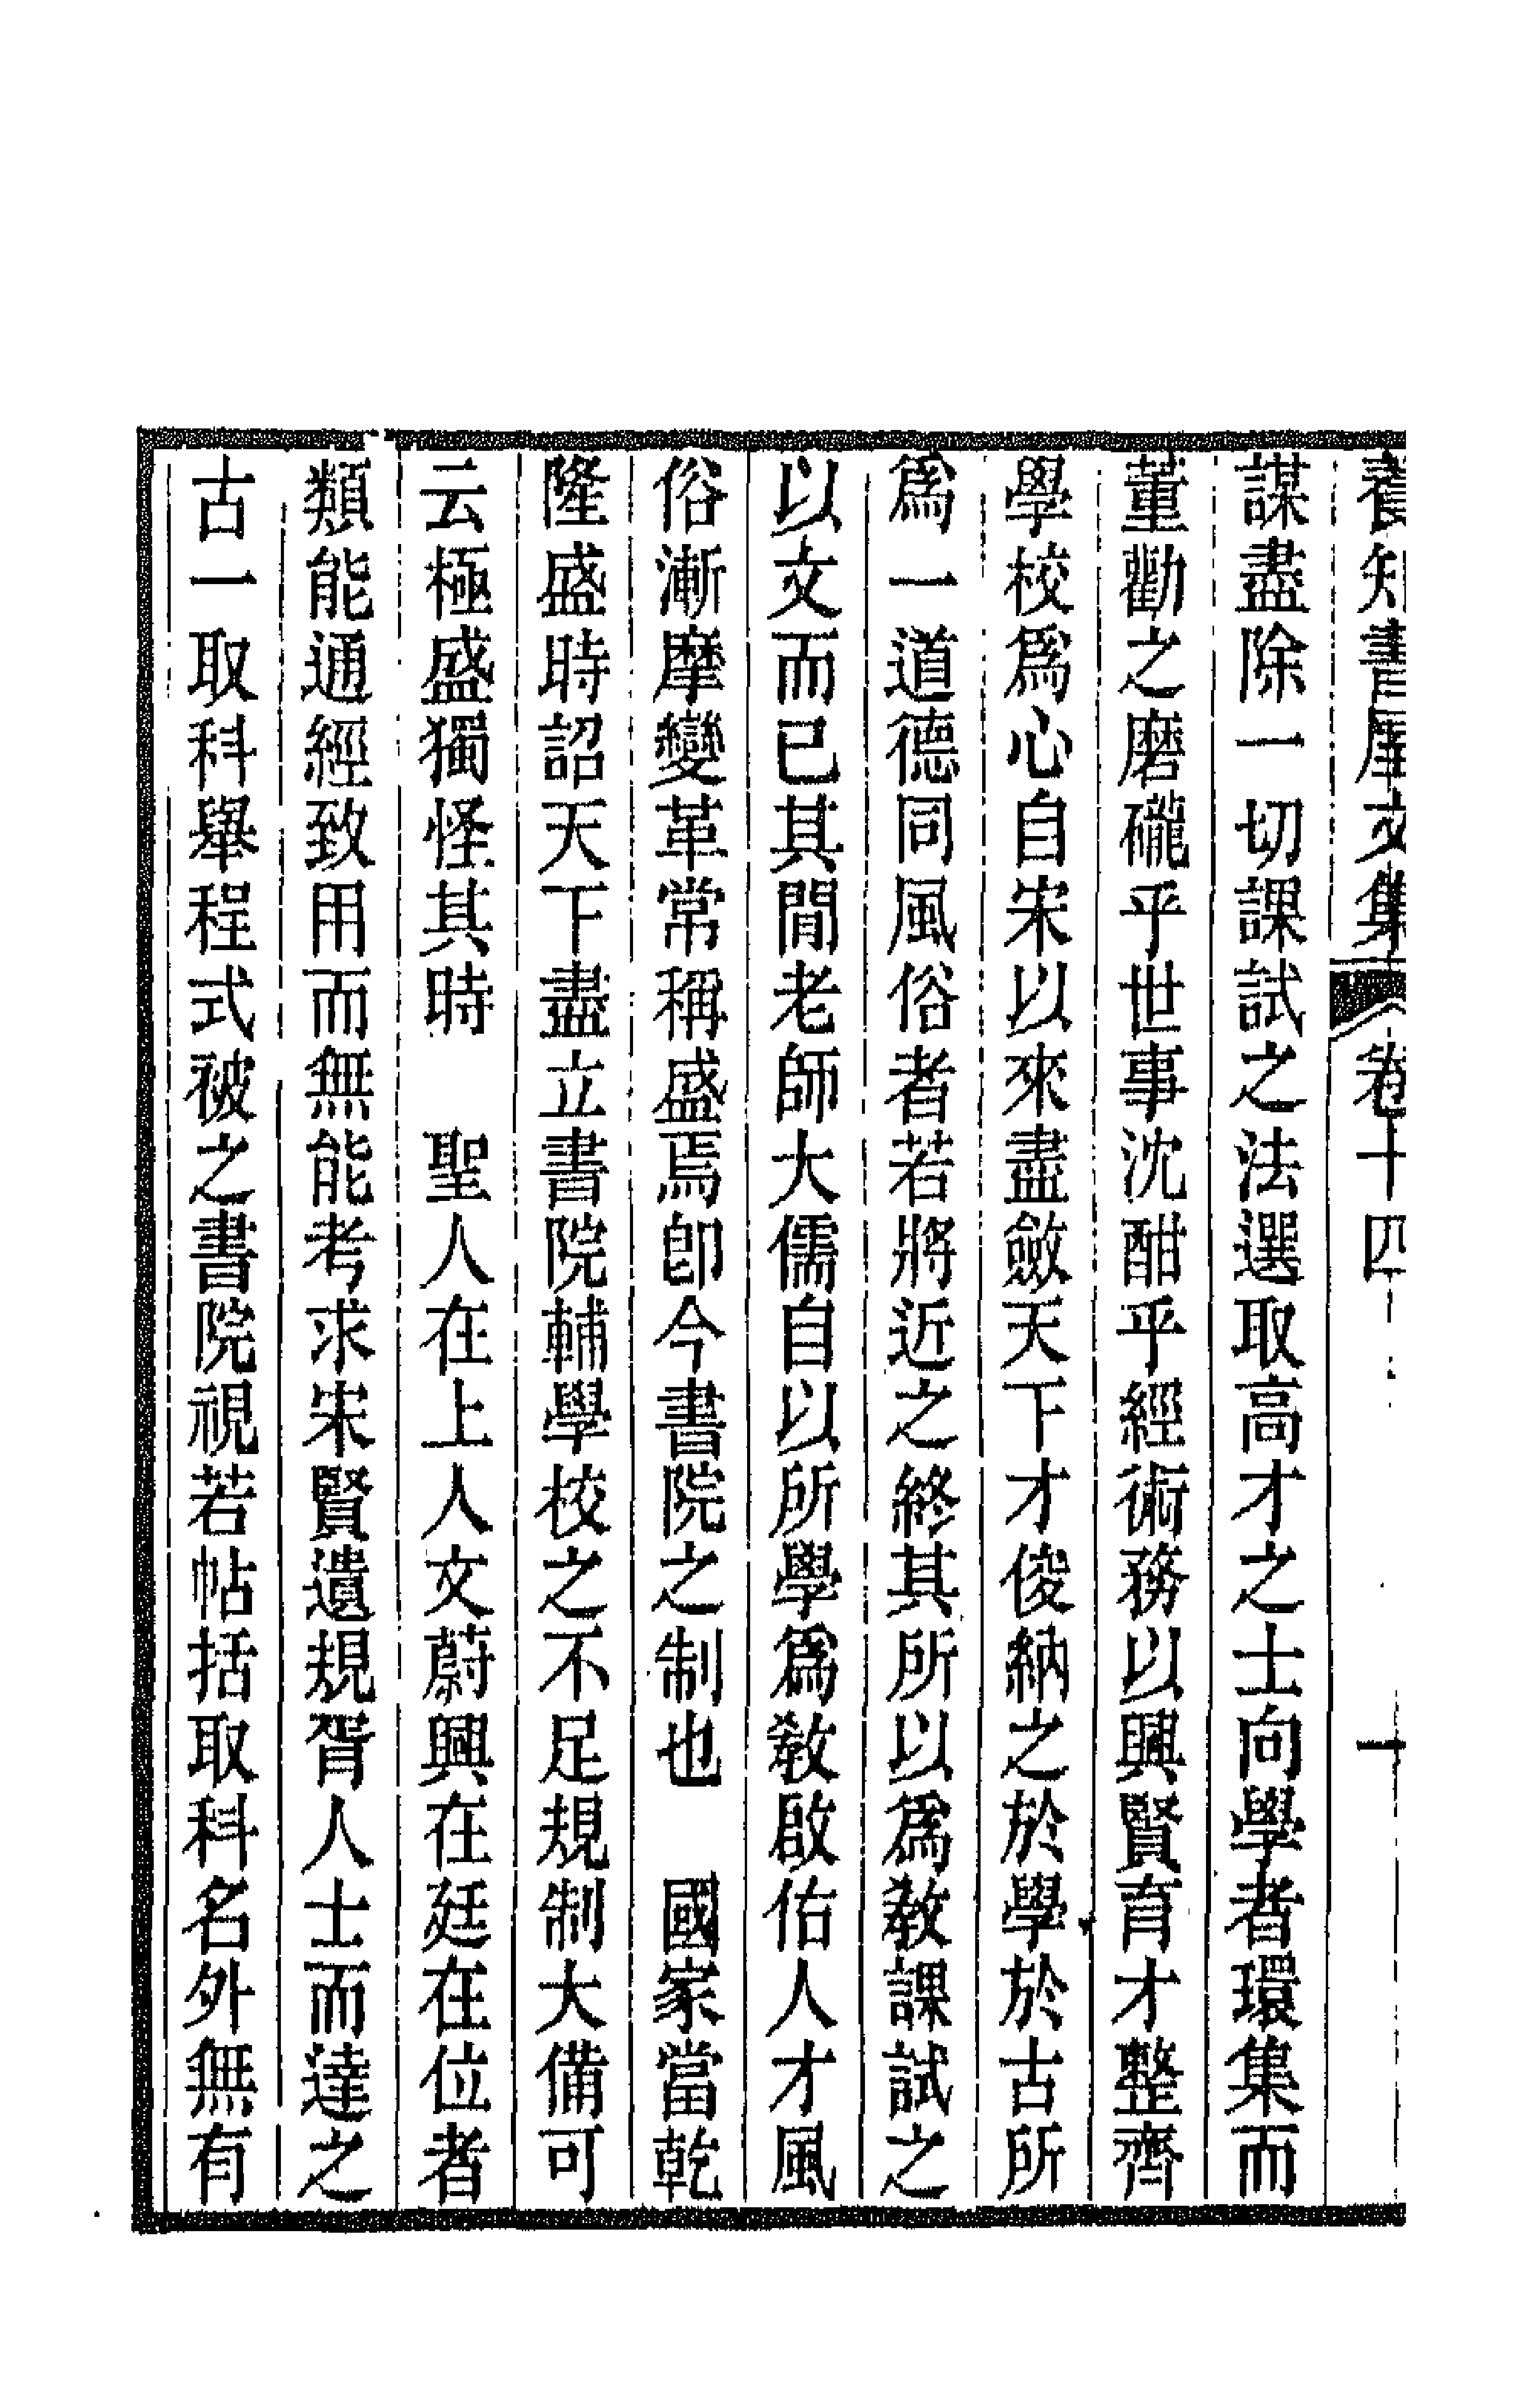 養知書屋文集 卷十四 一
謀盡除一切課試之法選取高才之士向學者環集而
董勸之磨礲乎世事沈酣乎經術務以興賢育才整齊
學校爲心自宋以來盡斂天下才俊納之於學於古所
爲一道德同風俗者若將近之終其所以爲敎課試之
以文而已其閒老師大儒自以所學爲敎啟佑人才風
俗漸摩變革常稱盛焉卽今書院之制也　國家當乾
隆盛時詔天下盡立書院輔學校之不足規制大備可
云極盛獨怪其時　聖人在上人文蔚興在廷在位者
類能通經致用而無能考求宋賢遺規胥人士而達之
古一取科舉程式被之書院視若帖括取科名外無有